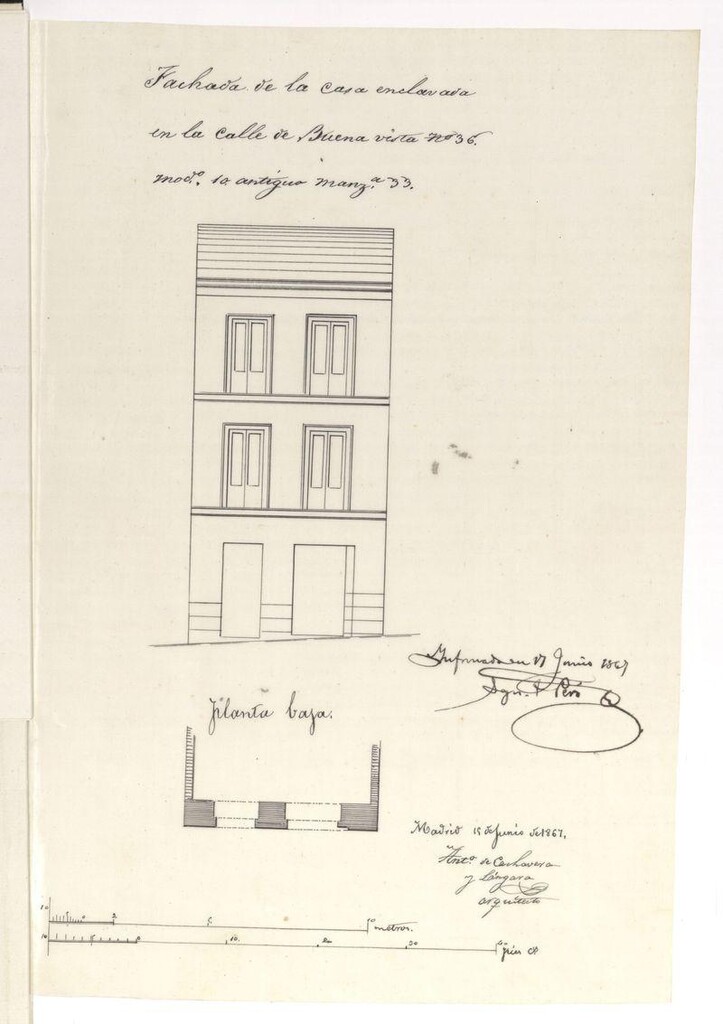 Fachada de la casa enclavada
en la calle de Buena vista nº 36.
mod.º 10 antiguo manz.ª 33.
Informada en 17 Junio 1867
Planta baja.
Madrid 15 de Junio de 1867.
Ant.º de Cachavera
y Lángara
arquitecto
10 0 2 5 10 metros.
10 5 0 10 20 30 40 pies